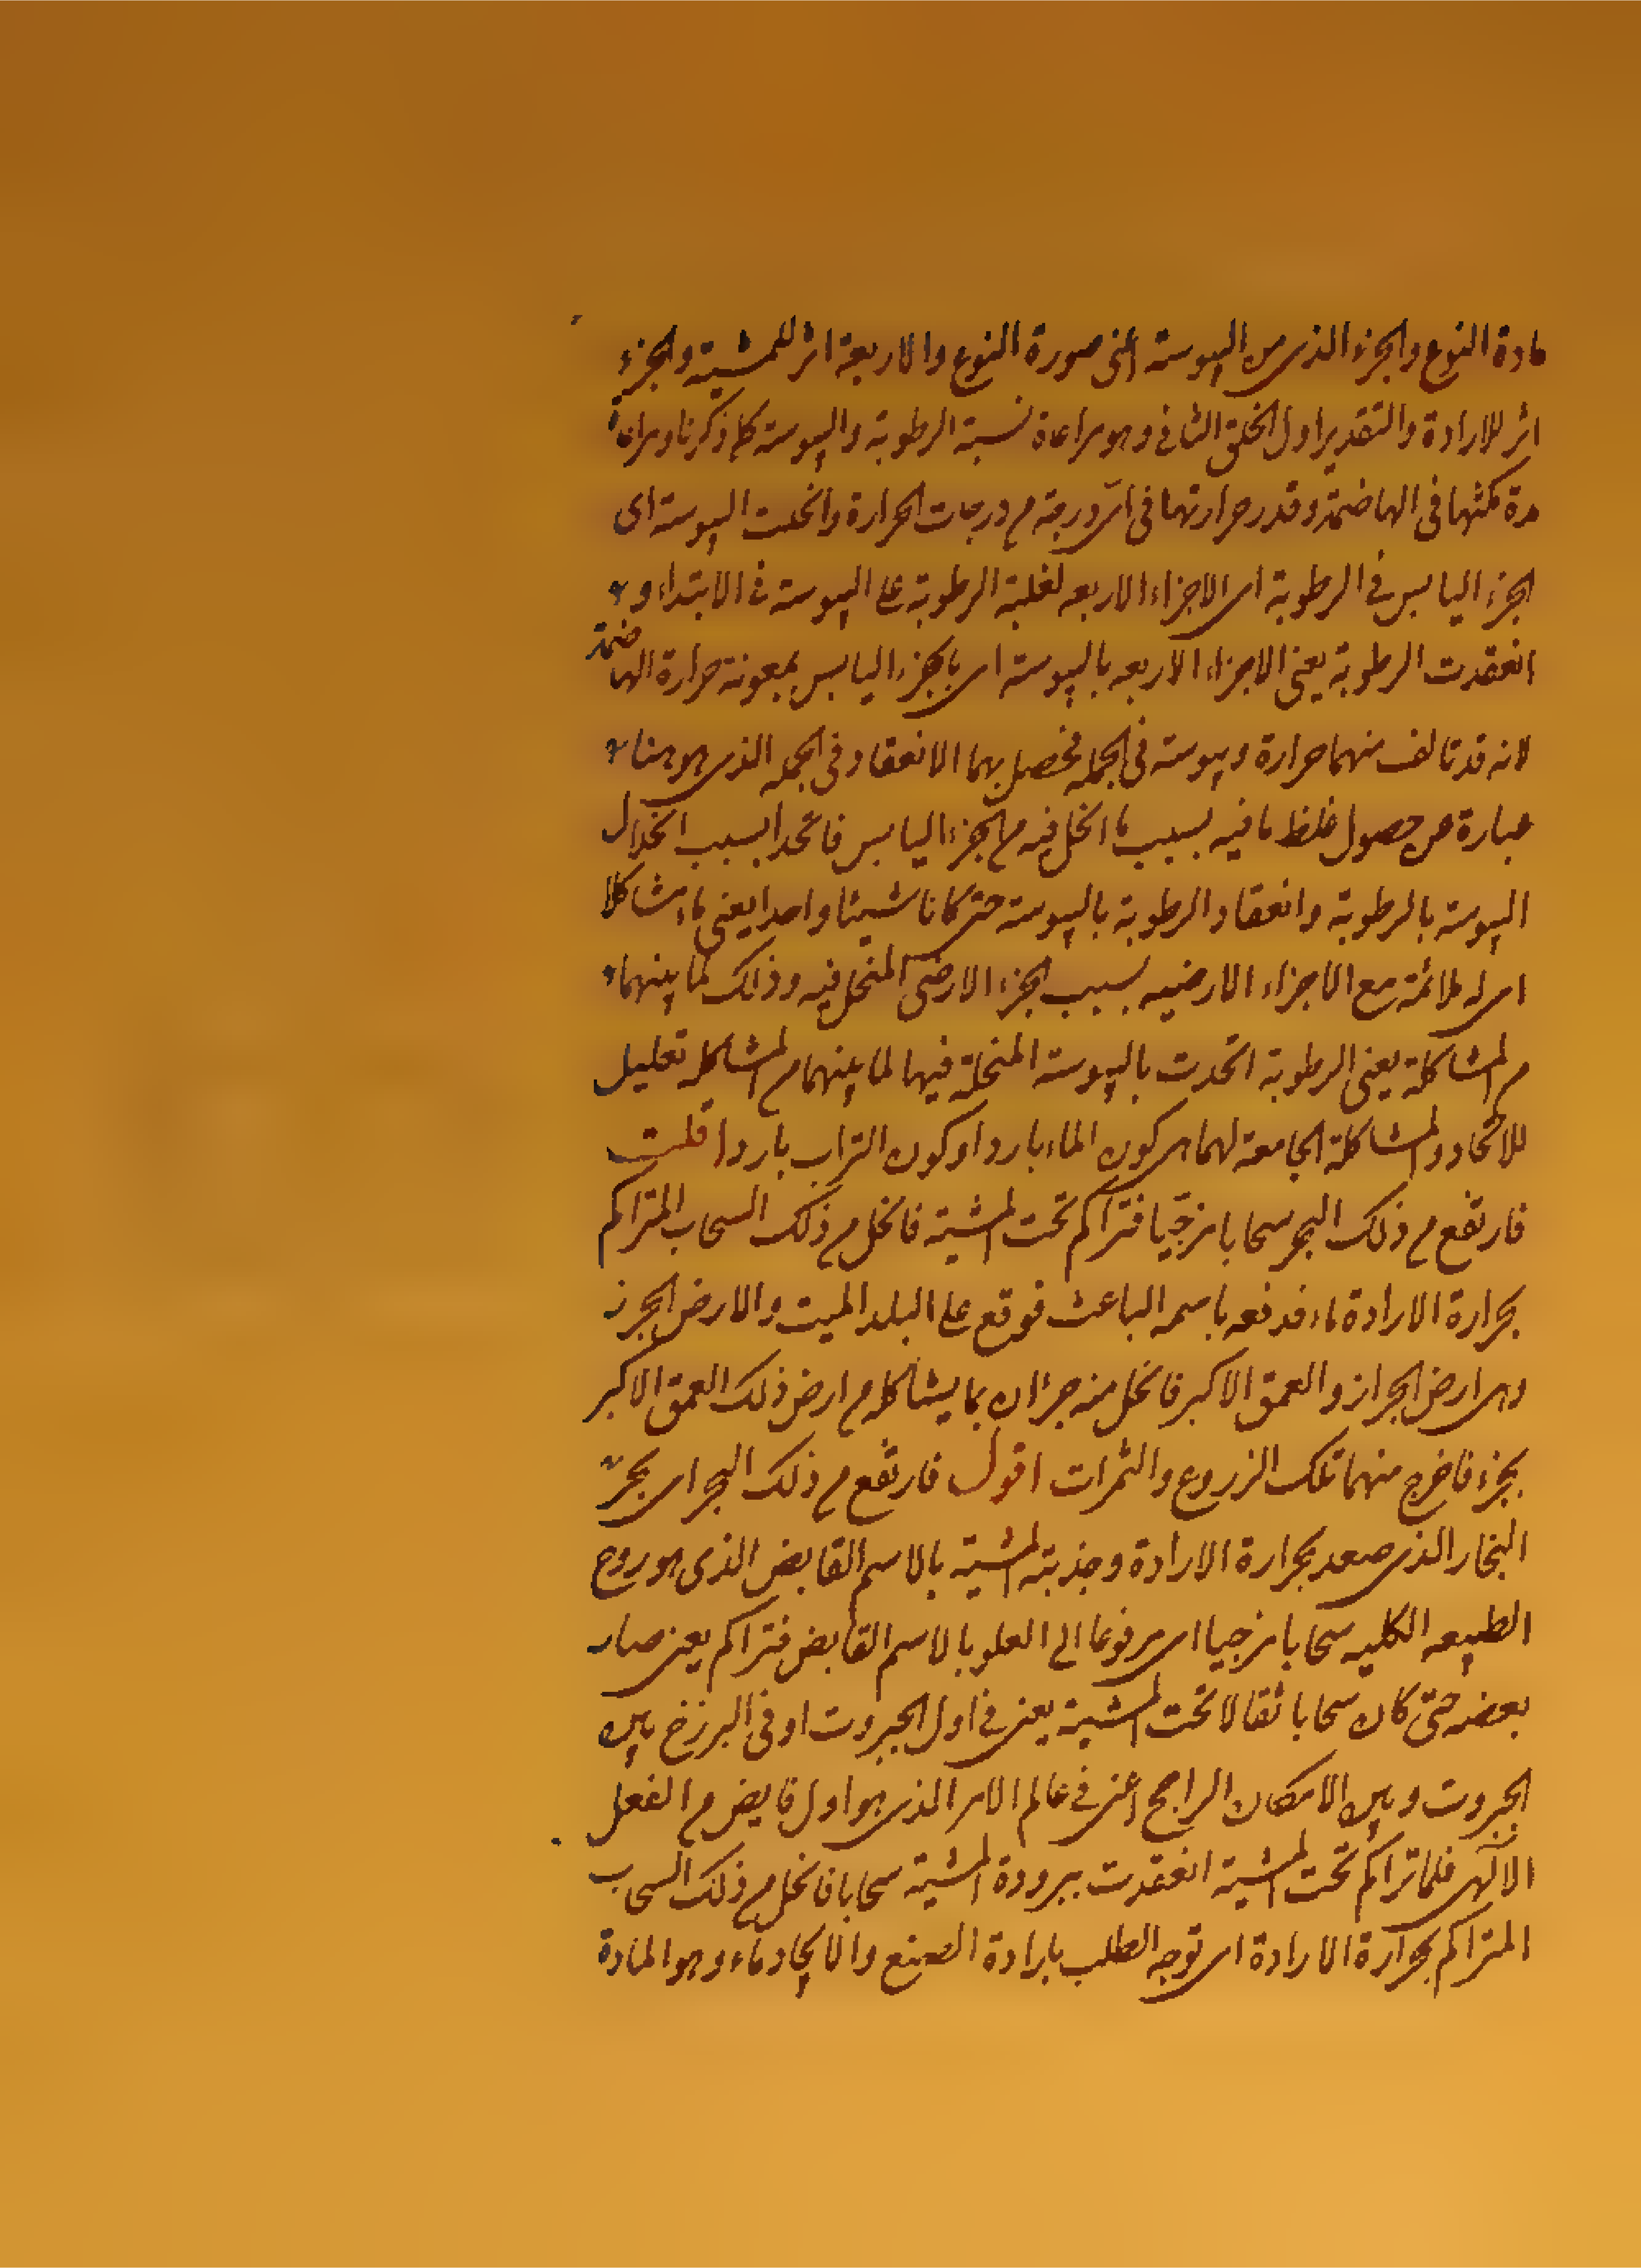 مادة النوع والجزء الذى من اليبوسة اعنى صورة النوع والاربعة اثر للمشية والجزء
اثر للارادة والتقدير اول الخلق الثانى وهو مراعاة نسبة الرطوبة واليبوسة كما ذكرنا ومراعاة
مدة مكثهما فى الهاضمة وقدر حرارتهما فى اىّ درجة من درجات الحرارة وانحلت اليبوسة اى
الجزء اليابس فى الرطوبة اى الاجزاء الاربعه لغلبة الرطوبة على اليبوسة فى الابتداء و
انعقدت الرطوبة يعنى الاجزاء الاربعه باليبوسة اى بالجزء اليابس بمعونة حرارة الهاضمة
لانه قد تالف منهما حرارة ويبوسة فى الجمله فحصل بهما الانعقاد فى الجمله الذى هو هنا
عبارة عن حصول غلظ ما فيه بسبب ما انحل فيه من الجزء اليابس فاتحدا بسبب انحلال
اليبوسة بالرطوبة وانعقاد الرطوبة باليبوسة حتى كانا شيئا واحدا يعنى ماء مشاكلا
اى له ملائمة مع الاجزاء الارضيه بسبب الجزء الارضى المنحل فيه وذلك لما بينهما
من المشاكلة يعنى الرطوبة اتحدت باليبوسة المنحلة فيها لما بينهما من المشاكله تعليل
للاتحاد والمشاكلة الجامعة لهما هى كون الماء باردا وكون التراب باردا قلت
فارتفع من ذلك البحر سحابا مزجّيا فتراكم تحت المشية فانحل من ذلك السحاب المتراكم
بحرارة الارادة ماء فدفعه باسمه الباعث فوقع على البلد الميت والارض الجرز
وهى ارض الجراز والعمق الاكبر فانحل منه جزءان بما يشاكله من ارض ذلك العمق الاكبر
بجزء فاخرج منهما تلك الزروع والثمرات اقول فارتفع من ذلك البحر اى بحر
البخار الذى صعد بحرارة الارادة وجذبته المشية بالاسم القابض الذى هو روح
الطبيعه الكليه سحابا مزجيا اى مرفوعا الى العلو بالاسم القابض فتراكم يعنى صار
بعضه حتى كان سحابا ثقالا تحت المشية يعنى فى اول الجبروت او فى البرزخ بين
الجبروت وبين الامكان الراجح اعنى فى عالم الامر الذى هو اول فايض من الفعل
الالٓهى فلما تراكم تحت المشية انعقدت ببرودة المشية سحابا فانحل من ذلك السحاب
المتراكم بحرارة الارادة اى توجه الطلب بارادة الصنع والايجاد ماء وهو المادة